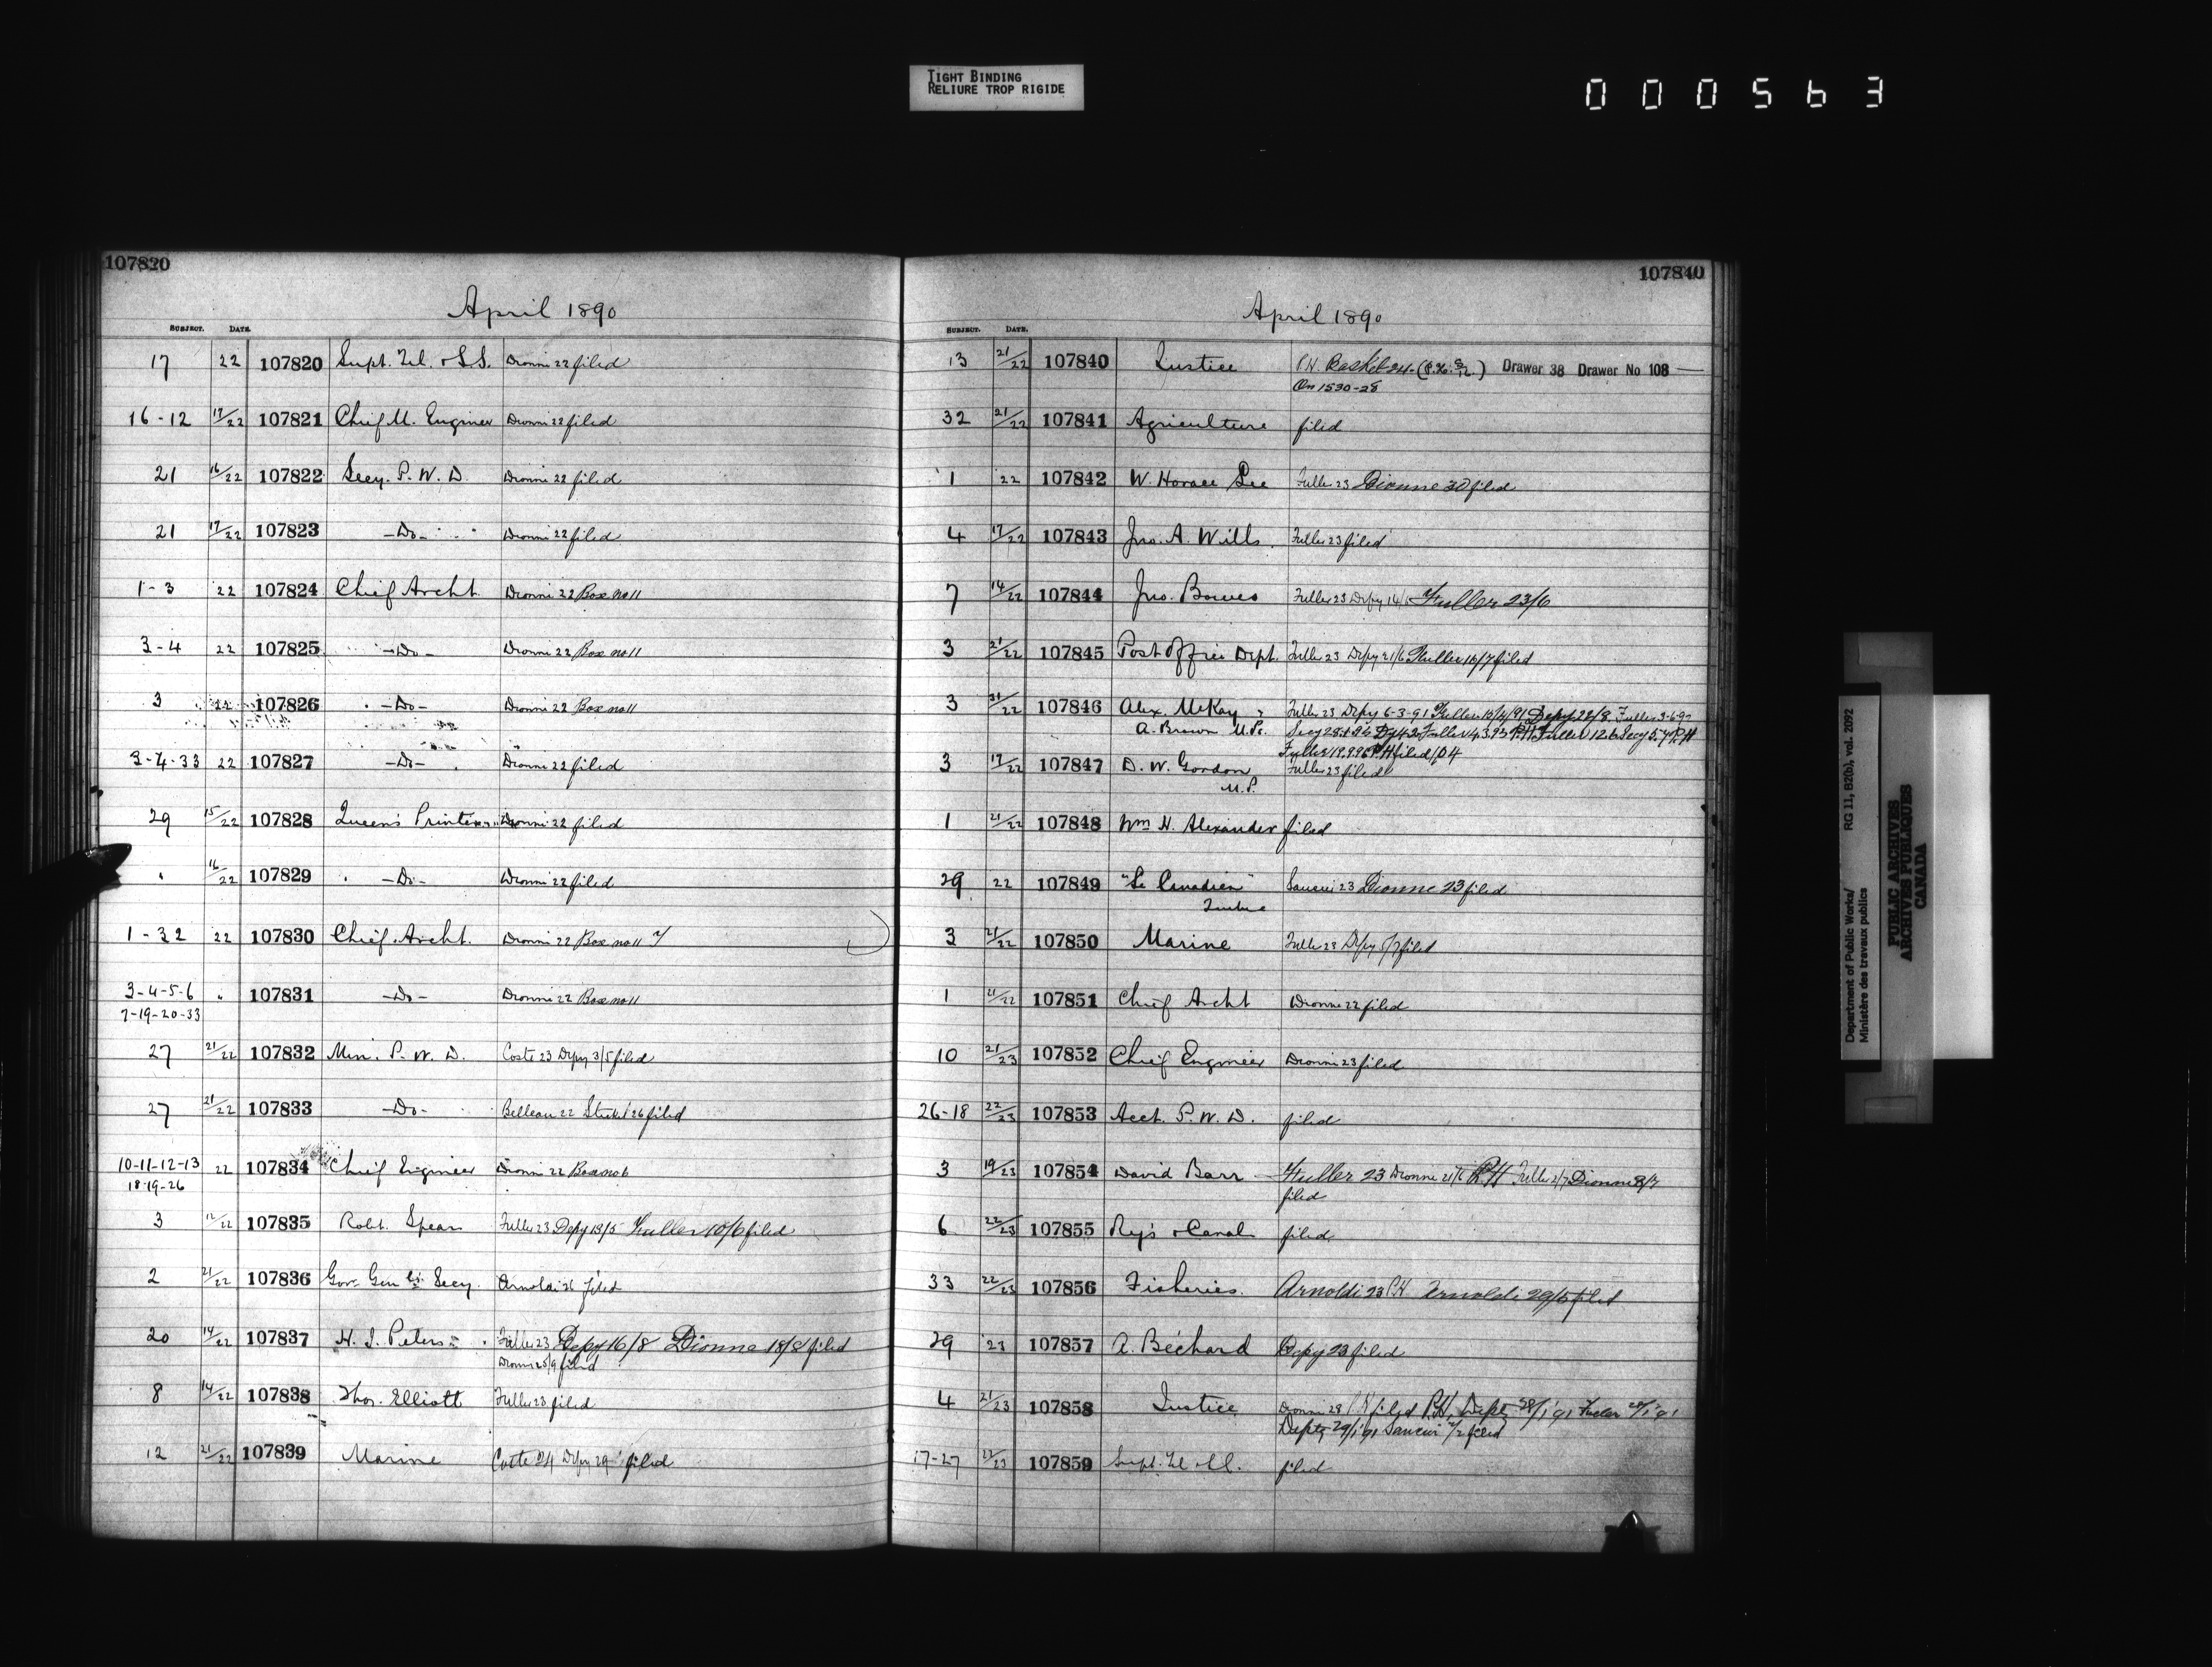 TIGHT BINDING
RELIURE TROP RIGIDE
000563
107820
April 1890
SUBJECT. DATE.
17 22 107820 Supt. Tel. & S.S. Dionne 22 filed
16-12 17/22 107821 Chief M. Engineer Dionne 22 filed
21 16/22 107822 Secy. P. W. D. Dionne 22 filed
21 17/22 107823 -Do- Dionne 22 filed
1-3 22 107824 Chief Archt. Dionne 22 Box no 11
3-4 22 107825 -Do- Dionne 22 Box no 11
3 22 107826 -Do- Dionne 22 Box no 11
3-4-33 22 107827 -Do- Dionne 22 filed
29 15/22 107828 Queen's Printer Dionne 22 filed
" 16/22 107829 -Do- Dionne 22 filed
1-32 22 107830 Chief Archt. Dionne 22 Box no 11
3-4-5-6 " 107831 -Do- Dionne 22 Box no 11
7-19-20-33
27 21/22 107832 Min. P. W. D. Coste 23 Depy 3/5 filed
27 21/22 107833 -Do- Belleau 22 26 filed
10-11-12-13 22 107834 Chief Engineer Dionne 22 Box no 6
18-19-26
3 12/22 107835 Robt. Spears Fuller 23 Depy 13/5 Fuller 10/6 filed
2 21/22 107836 Gov. Gen'ls Secy. Arnoldi 26 filed
20 14/22 107837 H. J. Peters Fuller 23 Depy 16/8 Dionne 18/8 filed
Dionne 25/9 filed
8 14/22 107838 Thos. Elliott Fuller 23 filed
12 21/22 107839 Marine Coste 24 Depy 29 filed
107840
April 1890
SUBJECT. DATE.
13 21/22 107840 Justice P.H. Basket 24 Drawer 38 Drawer No 108
On 1530-28
32 21/22 107841 Agriculture filed
1 22 107842 W. Horace Lee Fuller 23 Dionne 30 filed
4 17/22 107843 Jno. A. Wills. Fuller 23 filed
7 14/22 107844 Jno. Bowes Fuller 23 Depy 14/6 Fuller 23/6
3 21/22 107845 Post Office Dept. Fuller 23 Depy 21/6 Fuller 16/7 filed
3 21/22 107846 Alex. McKay Fuller 23 Depy 6-3-91 Fuller 10/4/91 Depy 22/8 Fuller
A. Brown M.Ps.
filed
3 17/22 107847 D. W. Gordon Fuller 23 filed
M.P.
1 21/22 107848 Wm H. Alexander filed
29 22 107849 "Le Canadien" Saucier 23 Dionne 23 filed
Quebec
3 21/22 107850 Marine Fuller 23 Depy 5/7 filed
1 21/22 107851 Chief Archt Dionne 22 filed
10 21/23 107852 Chief Engineer Dionne 23 filed
26-18 22/23 107853 Acct. P. W. D. filed
3 19/23 107854 David Barr Fuller 23 Dionne 21/6 P.H Fuller 2/7 Dionne 8/7
filed
6 22/23 107855 Rys & Canals filed
33 22/23 107856 Fisheries. Arnoldi 23 P.H. Arnoldi 29/5 filed
29 23 107857 A. Béchard Depy 23 filed
4 21/23 107858 Justice Dionne 28 filed P.H. Depty 28/1/91 Fuller 28/1/91
Depty 29/1/91 Saucier 2/2 filed
17-27 22/23 107859 Supt. Tel filed
Department of Public Works/
Ministère des travaux publics
RG 11, B2(b), vol. 2092
PUBLIC ARCHIVES
ARCHIVES PUBLIQUES
CANADA